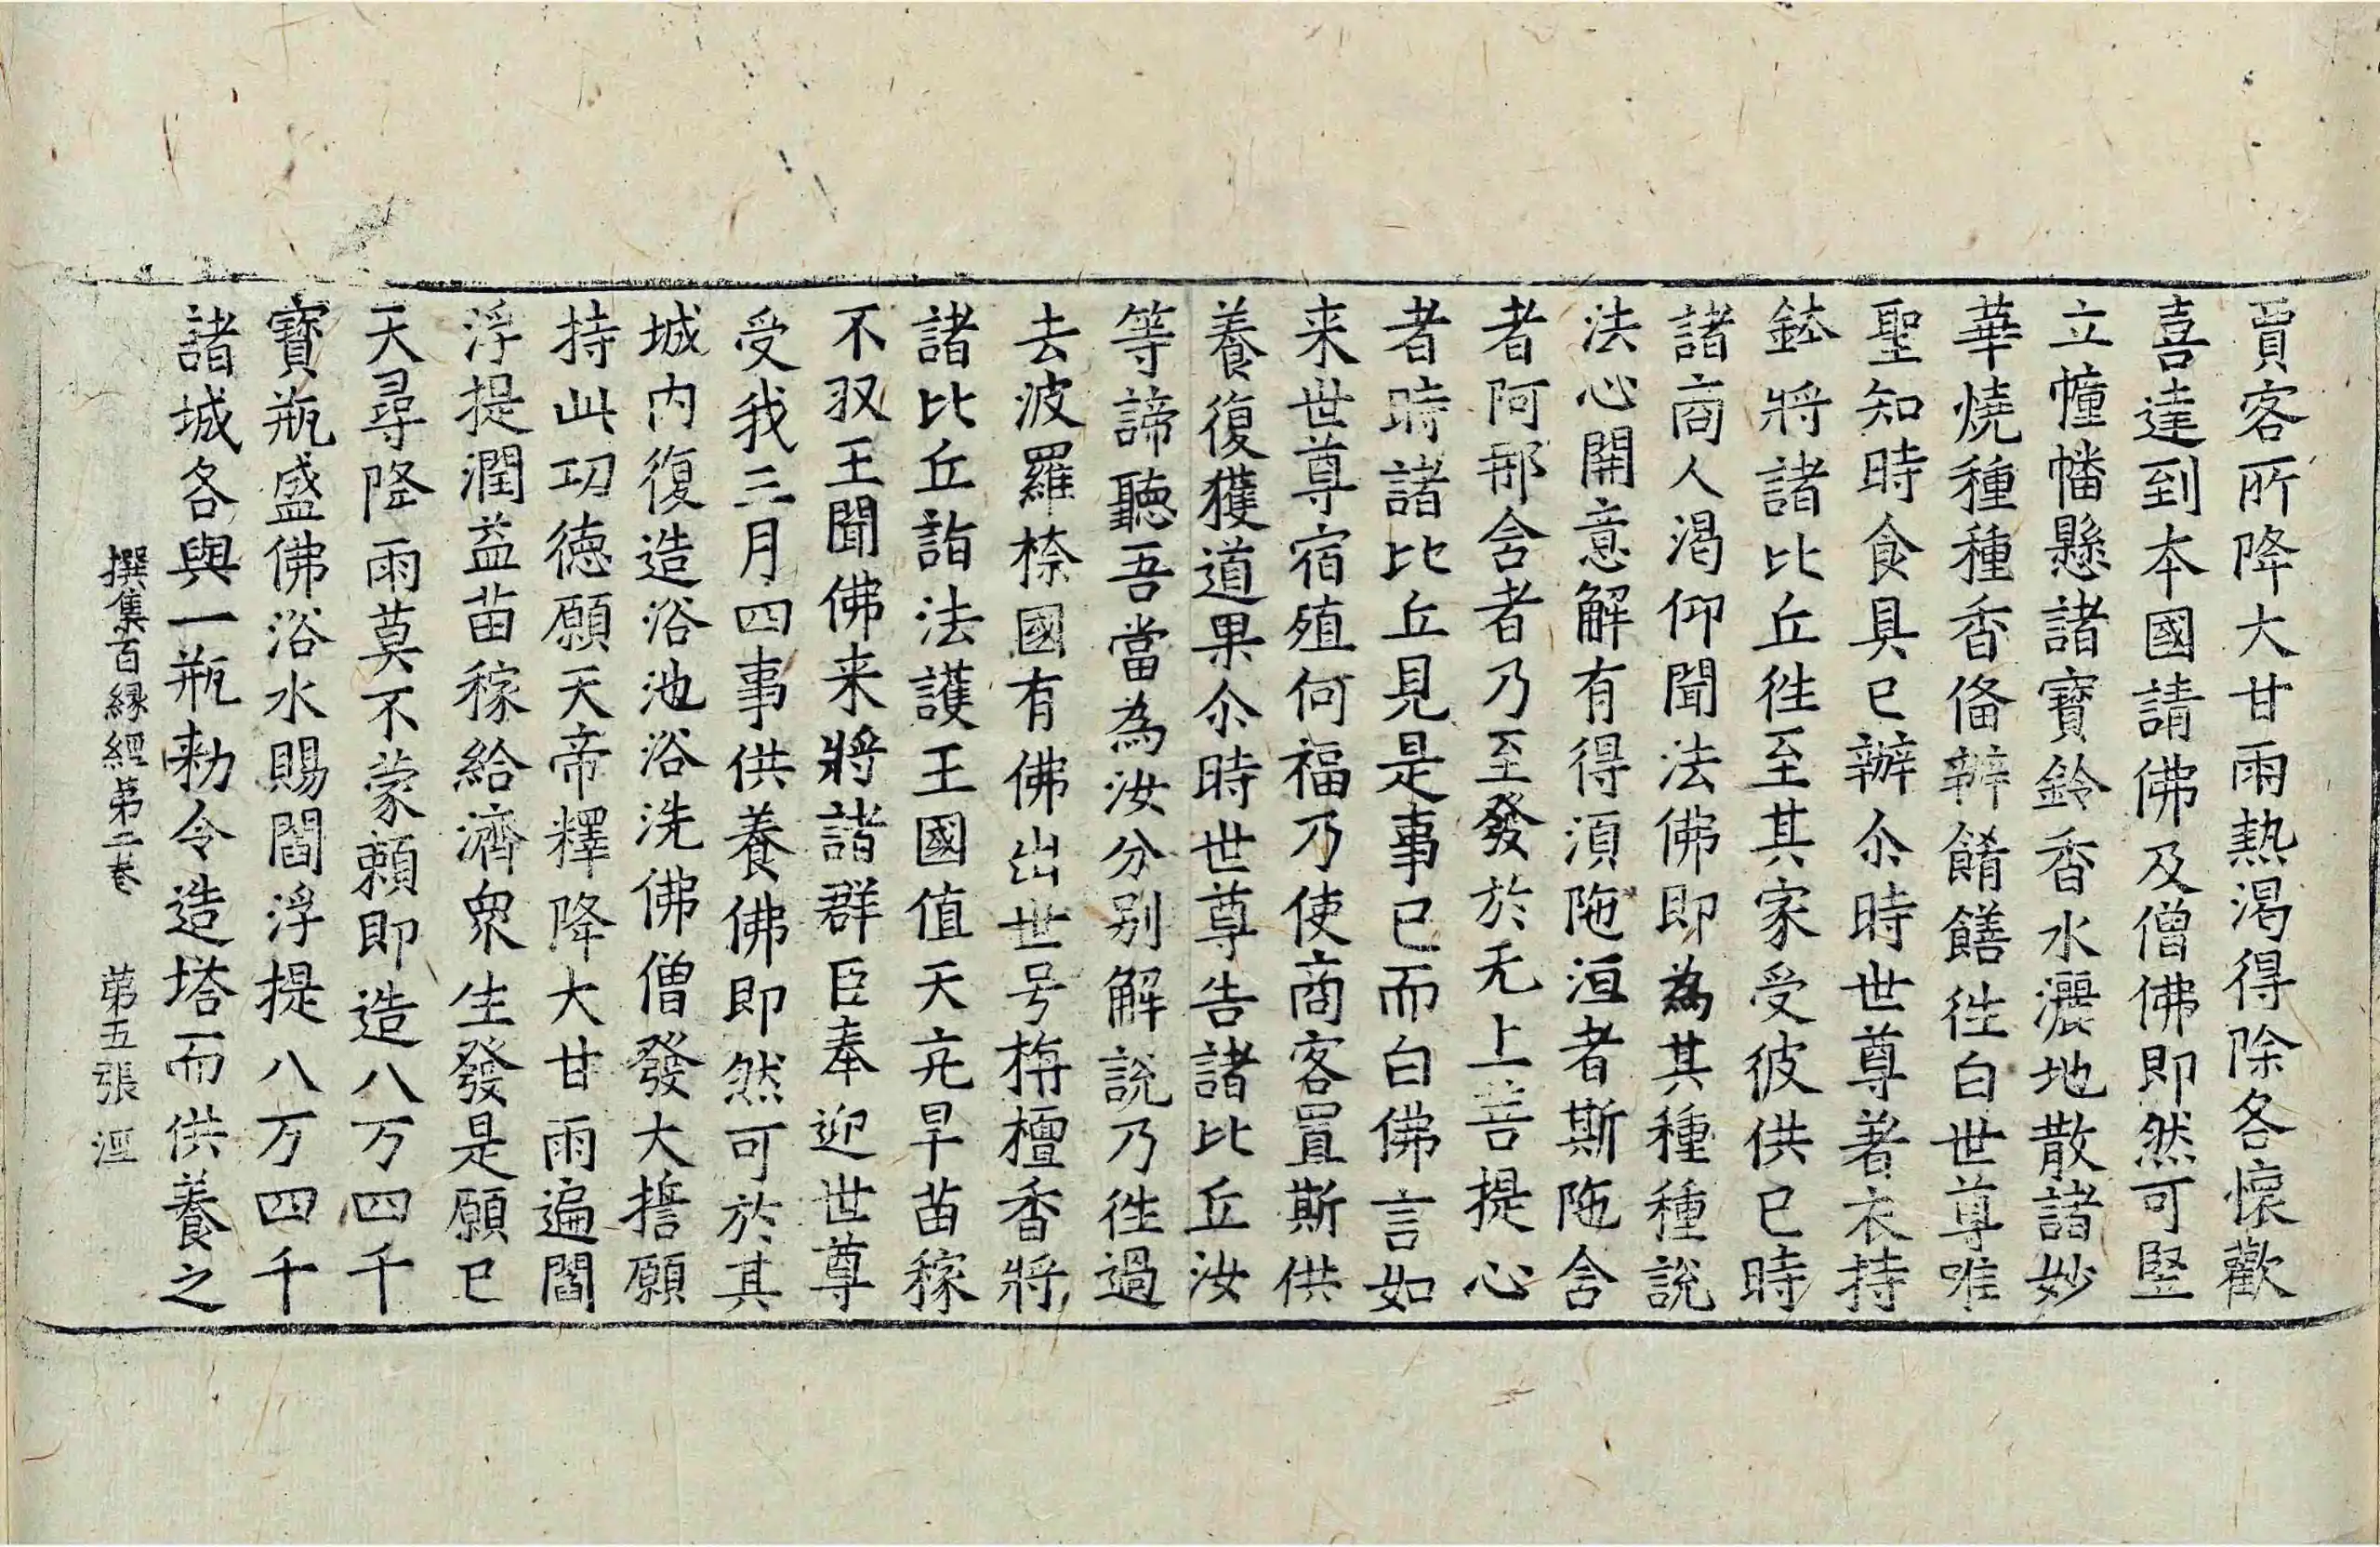 賈客所降大甘雨熱渴得除各懷歡
喜達到本國請佛及僧佛即然可竪
立幢幡懸諸寶鈴香水灑地散諸妙
華燒種種香俻辦餚饍徃白世尊唯
聖知時食具已辦尒時世尊著衣持
鉢將諸比丘徃至其家受彼供已時
諸商人渴仰聞法佛即為其種種說
法心開意解有得湏陁洹者斯陁含
者阿那含者乃至發於无上菩提心
者時諸比丘見是事已而白佛言如
来世尊宿殖何福乃使商客置斯供
養復獲道果尒時世尊告諸比丘汝
等諦聽吾當為汝分别解說乃徃過
去波羅㮈國有佛出世号栴檀香將
諸比丘詣法護王國值天亢旱苗稼
不収王聞佛来將諸群臣奉迎世尊
受我三月四事供養佛即然可於其
城内復造浴池浴洗佛僧發大擔願
持此功德願天帝釋降大甘雨遍閻
浮提潤益苗稼給濟衆生發是願已
天尋降雨莫不蒙賴即造八万四千
寶瓶盛佛浴水賜閻浮提八万四千
諸城各與一瓶勑令造塔而供養之
撰集百緣經第二卷 第五張 涇